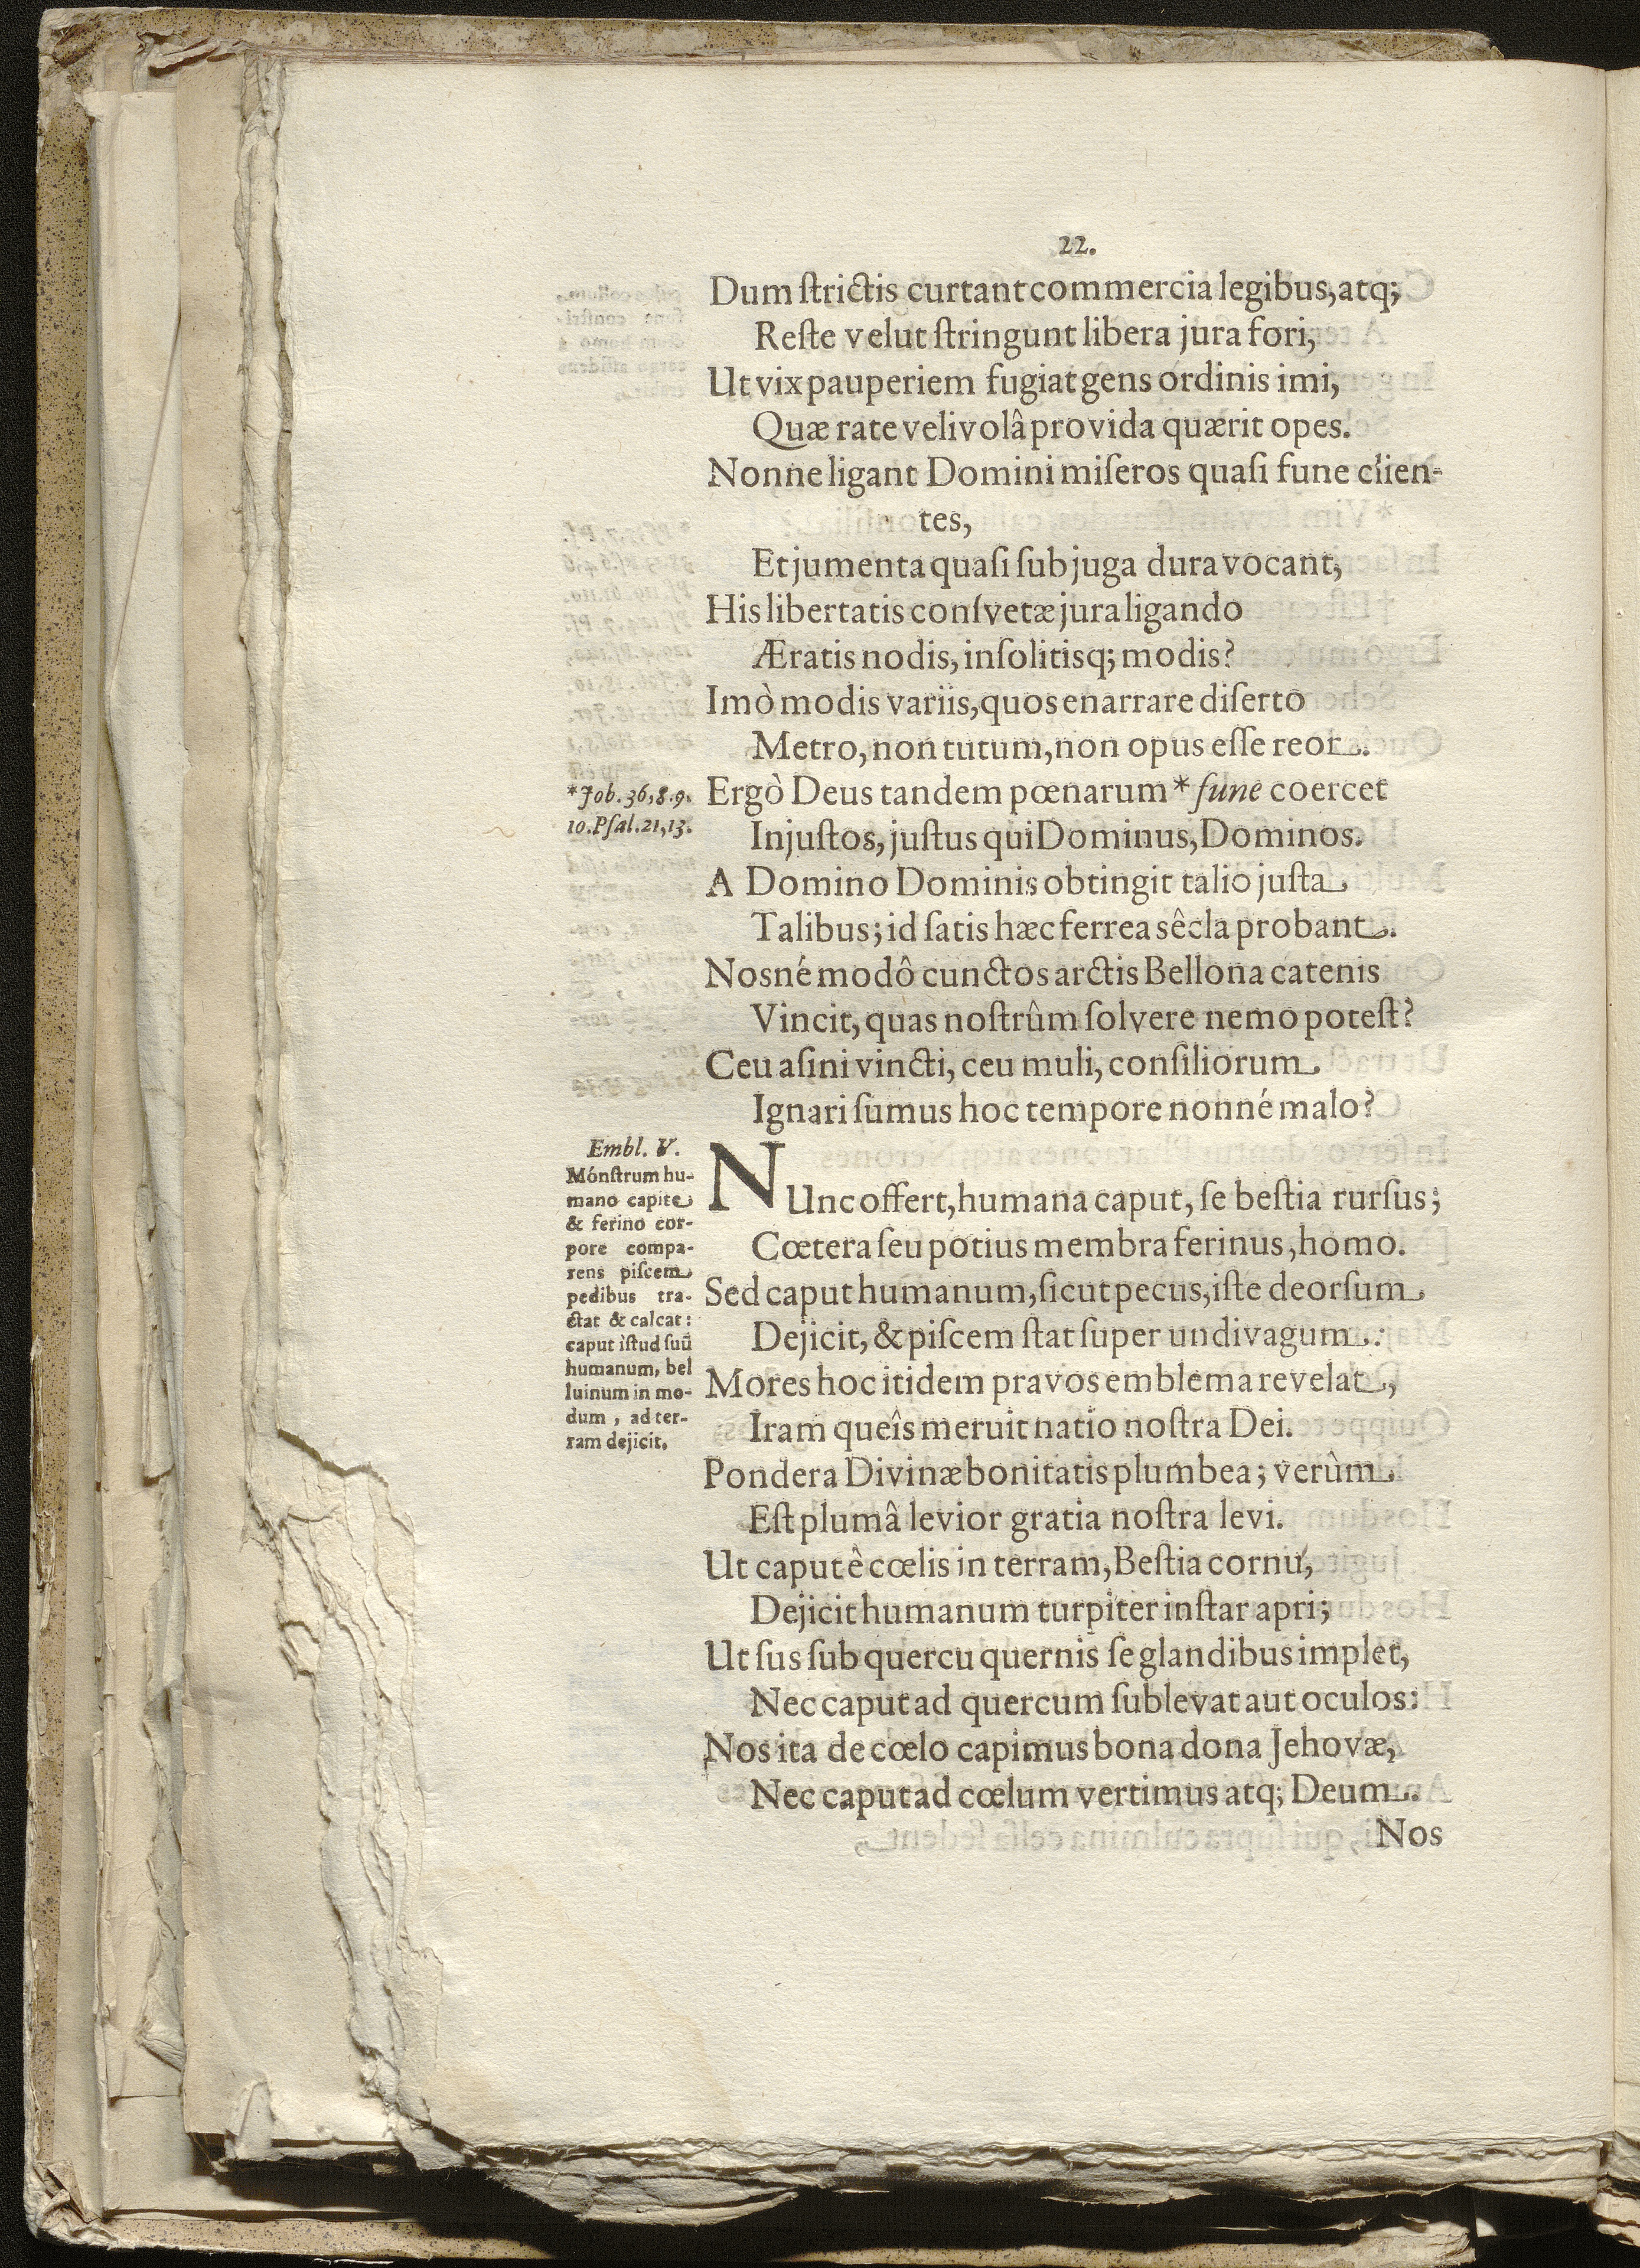 22.
Dum ſtrictis curtant commercia legibus, atq;
Reſte velut ſtringunt libera jura fori,
Ut vix pauperiem fugiat gens ordinis imi,
Quæ rate velivolâ provida quærit opes.
Nonne ligant Domini miſeros quaſi fune clien-
tes,
Et jumenta quaſi ſub juga dura vocant,
His libertatis conſvetæ jura ligando
Æratis nodis, inſolitisq; modis?
Imò modis variis, quos enarrare diſerto
Metro, non tutum, non opus eſſe reor.
*Job. 36,8.9.
10. Pſal. 21,13.
Ergò Deus tandem pœnarum * fune coercet
Injuſtos, juſtus qui Dominus, Dominos.
A Domino Dominis obtingit talio juſta
Talibus; id ſatis hæc ferrea sêcla probant.
Nosné modô cunctos arctis Bellona catenis
Vincit, quas noſtrûm ſolvere nemo poteſt?
Ceu aſini vincti, ceu muli, conſiliorum
Ignari ſumus hoc tempore nonné malo?
Embl. V.
Mónſtrum hu-
mano capite
& ferino cor-
pore compa-
rens piſcem
pedibus tra-
ctat & calcat:
caput iſtud ſuũ
humanum, bel
luinum in mo-
dum, ad ter-
ram dejicit.
NUnc offert, humana caput, ſe beſtia rurſus;
Cœtera ſeu potius membra ferinus, homo.
Sed caput humanum, ſicut pecus, iſte deorſum
Dejicit, & piſcem ſtat ſuper undivagum.
Mores hoc itidem pravos emblema revelat,
Iram queîs meruit natio noſtra Dei.
Pondera Divinæ bonitatis plumbea; verûm
Eſt plumâ levior gratia noſtra levi.
Ut caput è cœlis in terram, Beſtia cornu,
Dejicit humanum turpiter inſtar apri;
Ut ſus ſub quercu quernis ſe glandibus implet,
Nec caput ad quercum ſublevat aut oculos:
Nos ita de cœlo capimus bona dona Jehovæ,
Nec caput ad cœlum vertimus atq; Deum.
Nos